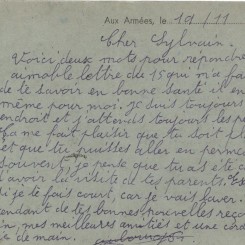 Aux Armées, le 15/11
Cher Sylvain.
Voici deux mots pour repondre
aimable lettre du 15 qui m'a fai
de te savoir en bonne santé il en
même pour moi. Je suis toujours
endroit et j'attends toujours les pe
Ça me fait plaisir que tu soit
et que tu puisses aller en perme
souvent, je pente que tu as été c
d'avoir la visite de tes parents.
si je te fais court, car je vais faver.
endant de tes bonnes nouvelles reço
n, mes meilleures amitiés et une cor
e de main.